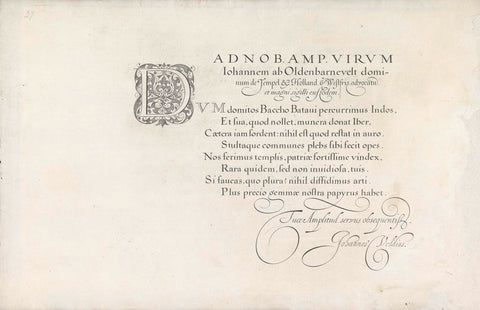 27
AD NOB. AMP. VIRVM
Iohannem ab Oldenbarnevelt domi-
num de Tempel &c Holland & Westfris. advocatū
et magni sigilli custodem.
DVM domitos Baccho Bataui percurrimus Indos,
Et sua, quod nollet, munera donat Iber,
Cætera iam sordent: nihil est quod restat in auro.
Stultaque communes plebs sibi fecit opes.
Nos ferimus templis, patriæ fortissime vindex,
Rara quidem, sed non inuidiosa, tuis.
Si faueas, quo plura? nihil diffidimus arti.
Plus precio gemmæ nostra papyrus habet.
Tuæ Amplitud. servus obsequentiss.
Johannes Veldius.